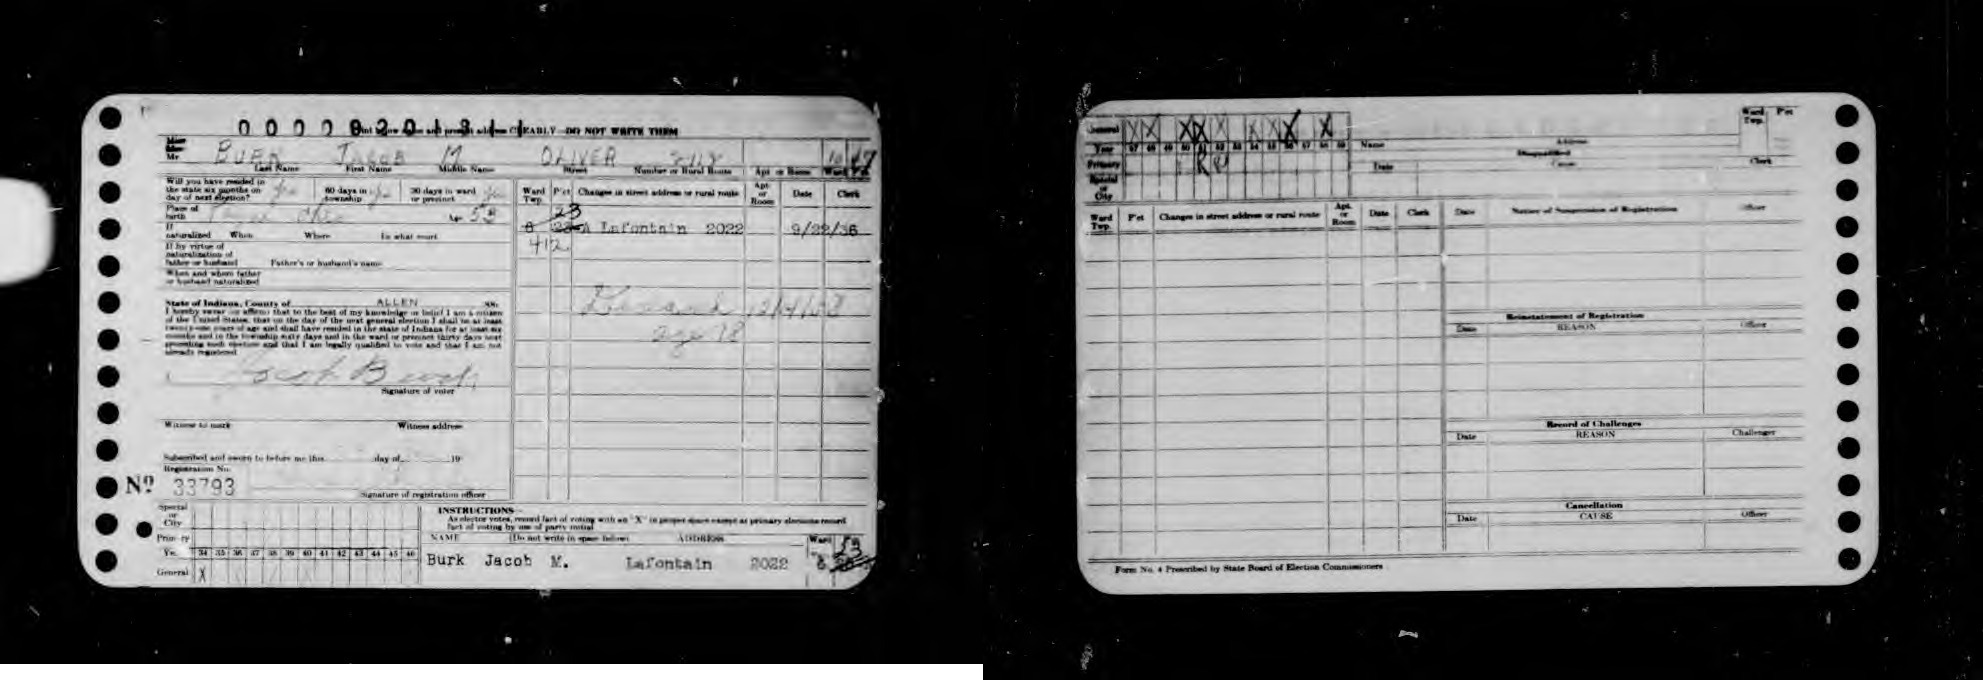 Print below name and present address CLEARLY—DO NOT WRITE THEM
Mr. BURK JACOB M OLIVER 10 47
Last Name First Name Middle Name Street Number or Rural Route Apt or Room Ward P'ct
Will you have resided in the state six months on day of next election? 60 days in township 30 days in ward or precinct
Place of birth Age 53
If naturalized When Where In what court
If by virtue of naturalization of father or husband Father's or husband's name
When and where father or husband naturalized
State of Indiana, County of ALLEN ss:
I hereby swear (or affirm) that to the best of my knowledge or belief I am a citizen
of the United States, that on the day of the next general election I shall be at least
twenty-one years of age and shall have resided in the state of Indiana for at least six
months and in the township sixty days and in the ward or precinct thirty days next
preceding such election and that I am legally qualified to vote and that I am not
already registered
Jacob Burk
Signature of voter
Witness to mark Witness address
Subscribed and sworn to before me this day of 19
Registration No.
Nº 33793
Signature of registration officer
Ward Twp. P'ct Changes in street address or rural route Apt. or Room Date Clerk
23
8 A Lafontain 2022 9/22/36
412
age 78
Special or City
Primary
Yr. 34 35 36 37 38 39 40 41 42 43 44 45 46
General X
INSTRUCTIONS—
As elector votes, record fact of voting with an "X" in proper space except at primary elections record
fact of voting by use of party initial
NAME (Do not write in space below) ADDRESS Ward
Burk Jacob M. Lafontain 2022 8
General X X X X X X X X X
Year 47 48 49 50 51 52 53 54 55 56 57 58 59
Primary R
Special or City
Name Address
Ward Twp. P'ct
Disqualified
Date Cause Clerk
Ward Twp. P'ct Changes in street address or rural route Apt. or Room Date Clerk
Date Notice of Suspension of Registration Officer
Reinstatement of Registration
Date REASON Officer
Record of Challenges
Date REASON Challenger
Cancellation
Date CAUSE Officer
Form No. 4 Prescribed by State Board of Election Commissioners